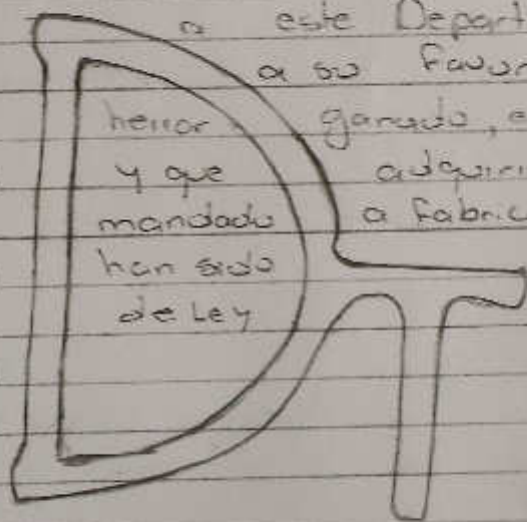 a este Depart
a su favor
herrar ganado, e
y que adquiri
mandado a fabric
han sido
de Ley